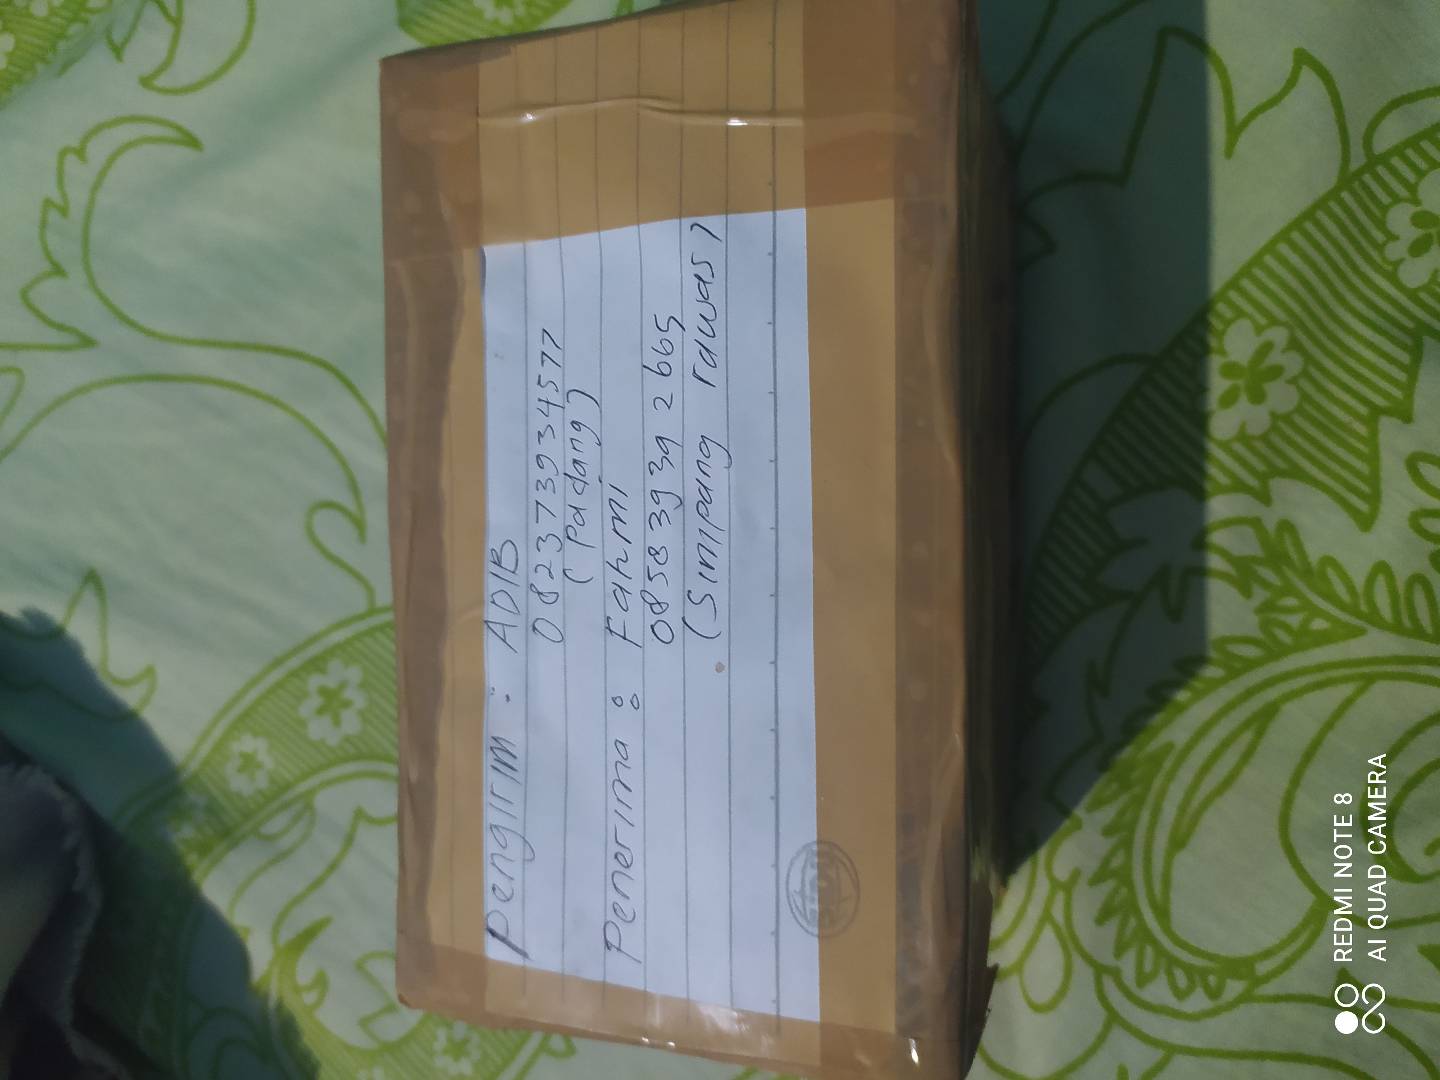 Pengirim : ADIB
082373934577
(Padang)
Penerima : Fahmi
085839392665
(Simpang rawas)
SIDU
REDMI NOTE 8
AI QUAD CAMERA